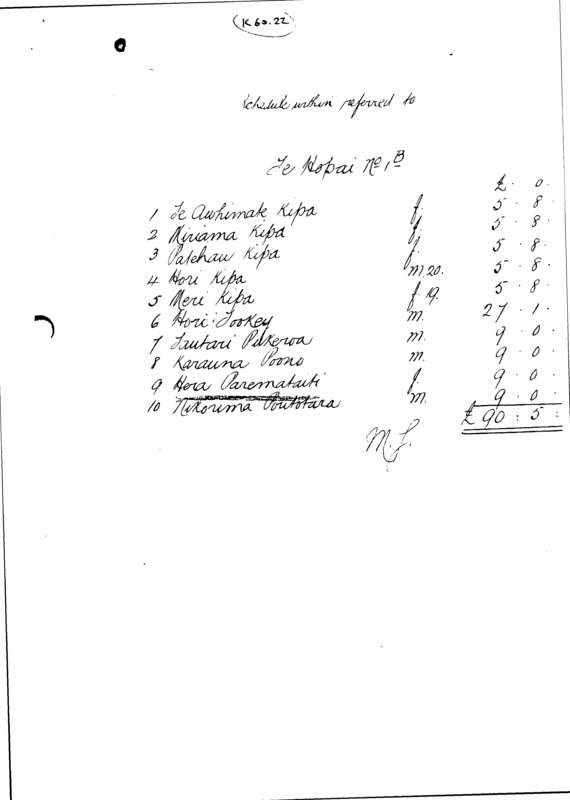 K60.22
Schedule within referred to
Te Hopai No 1B
£ . 0.
1 Te Awhimate Kipa f. 5 . 8 .
2 Miriama Kipa f. 5 . 8 .
3 Kipa f. 5 . 8 .
4 Hori Kipa m. 20. 5 . 8 .
5 Meri Kipa f 19. 5 . 8 .
6 Hori Tookey m. 27 . 1 .
7 Tautari Pukeroa m. 9 . 0 .
8 Karauna Poono m. 9 . 0 .
9 Hera Paremataiti f. 9 . 0 .
10 Nikorima Poutotara m. 9 . 0 .
£90 : 5 :